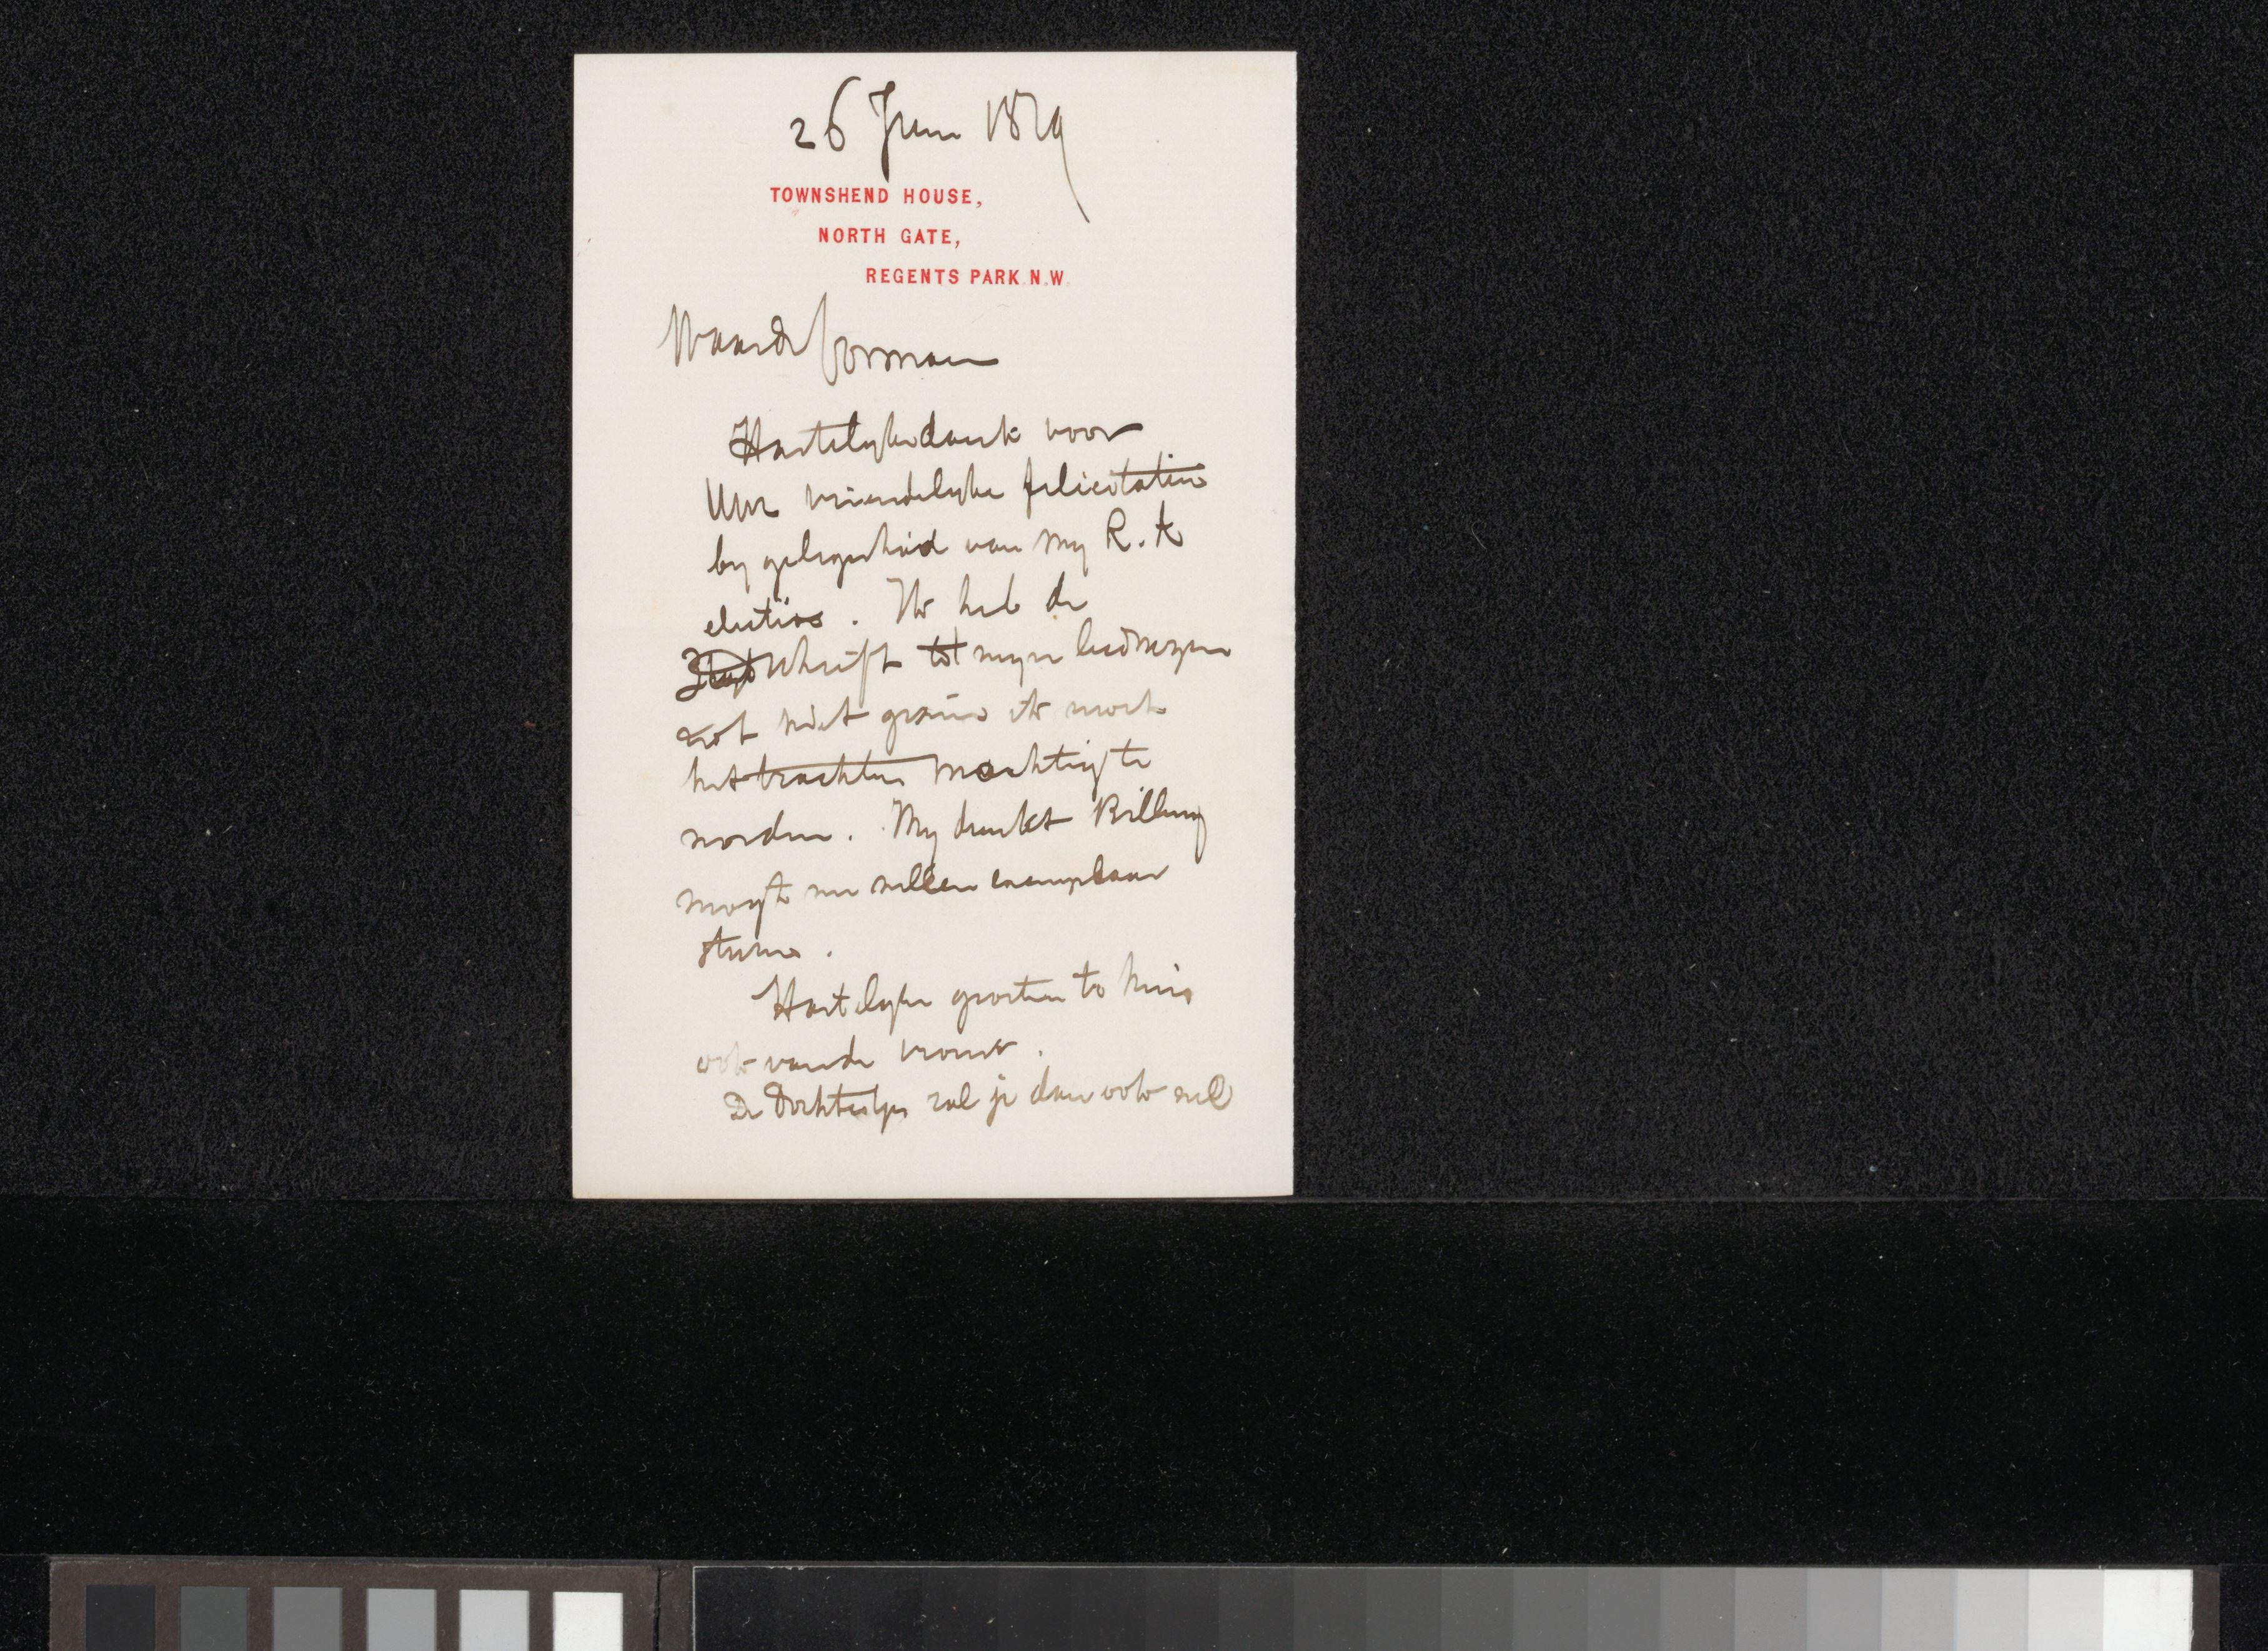 26 Juni 1879
TOWNSHEND HOUSE,
NORTH GATE,
REGENTS PARK N.W.
Waarde Vosmaer
Hartelyke dank voor
Uwe vriendelyke felicitatie
by gelegenheid van my R.A
election. Ik heb de
schrift tot myn leedwezen
niet gezien ik moet
het trachten machtig te
worden. My dunkt Billung
mogt me wel een exemplaar
sturen.
Hartelyke groeten to huis
ook van de vrouw.
De Dochtertjes zal je dan ook wel